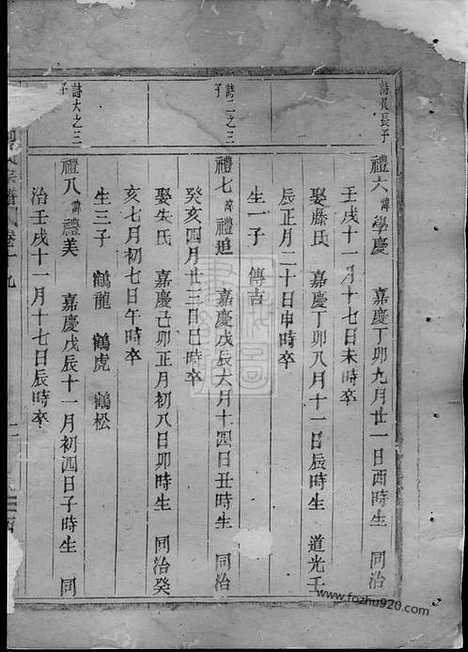 詩良長子
禮六諱學慶 嘉慶丁卯九月廿一日酉時生 同治
壬戌十一月十七日未時卒
娶滕氏 嘉慶丁卯八月十一日辰時生 道光壬
辰正月二十日申時卒
生一子 傳吉
詩二之三子
禮七諱禮進 嘉慶戊辰六月十四日丑時生 同治
癸亥四月廿三日巳時卒
娶朱氏 嘉慶己卯正月初八日卯時生 同治癸
亥七月初七日午時卒
生三子 鶴龍 鶴虎 鶴松
詩大之三子
禮八諱禮美 嘉慶戊辰十一月初四日子時生 同
治壬戌十一月十七日辰時卒
宗譜 卷十九
www.fozhu920.com